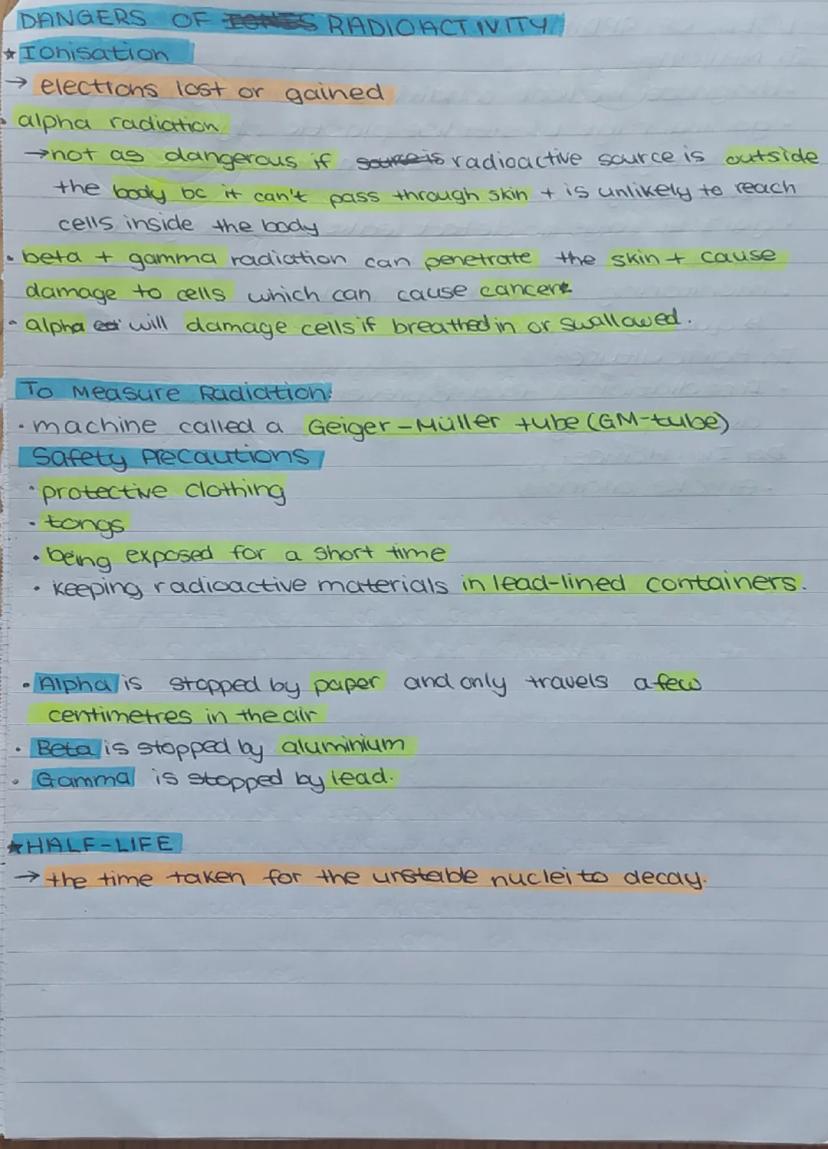 DANGERS OF RADIOACTIVITY
★Ionisation
→ elections lost or gained
• alpha radiation
→not as dangerous if radioactive source is outside
the body bc it can't pass through skin + is unlikely to reach
cells inside the body
• beta + gamma radiation can penetrate the skin + cause
damage to cells which can cause cancer.
• alpha will damage cells if breathed in or swallowed.
To Measure Radiation:
• machine called a Geiger-Müller tube (GM-tube)
Safety Precautions
• protective clothing
• tongs
• being exposed for a short time
• keeping radioactive materials in lead-lined containers.
• Alpha is stopped by paper and only travels a few
centimetres in the air
• Beta is stopped by aluminium
• Gamma is stopped by lead.
★HALF-LIFE
→ the time taken for the unstable nuclei to decay.